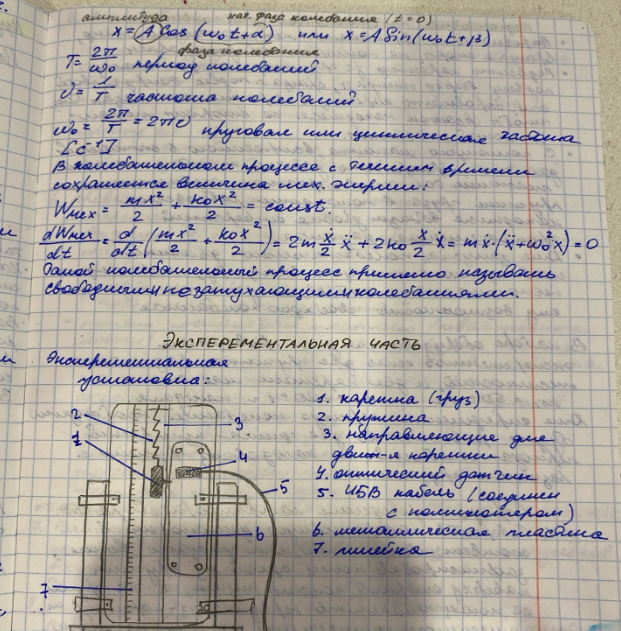 амплитуда нач. фаза колебания (t=0)
x = A cos (ω₀t+α) или x = A sin (ω₀t+β)
фаза колебания
T = 2π/ω₀ период колебаний
ν = 1/T частота колебаний
ω₀ = 2π/T = 2πν круговая или циклическая частота
[с⁻¹]
В колебательном процессе с течением времени
сохраняется величина мех. энергии:
Wмех = mẋ²/2 + k₀x²/2 = const.
dWмех/dt = d/dt (mẋ²/2 + k₀x²/2) = 2m ẋ/2 ẍ + 2k₀ x/2 ẋ = mẋ·(ẍ+ω₀²x) = 0
Такой колебательный процесс принято называть
свободными незатухающими колебаниями.
ЭКСПЕРЕМЕНТАЛЬНАЯ ЧАСТЬ
Эксперементальная
установка:
1. каретка (груз)
2. пружина
3. направляющие для
движ-я каретки
4. оптический датчик
5. ЮБВ кабель (соединен
с компьютером)
6. металлическая пластина
7. линейка
2
3
1
4
5
6
7